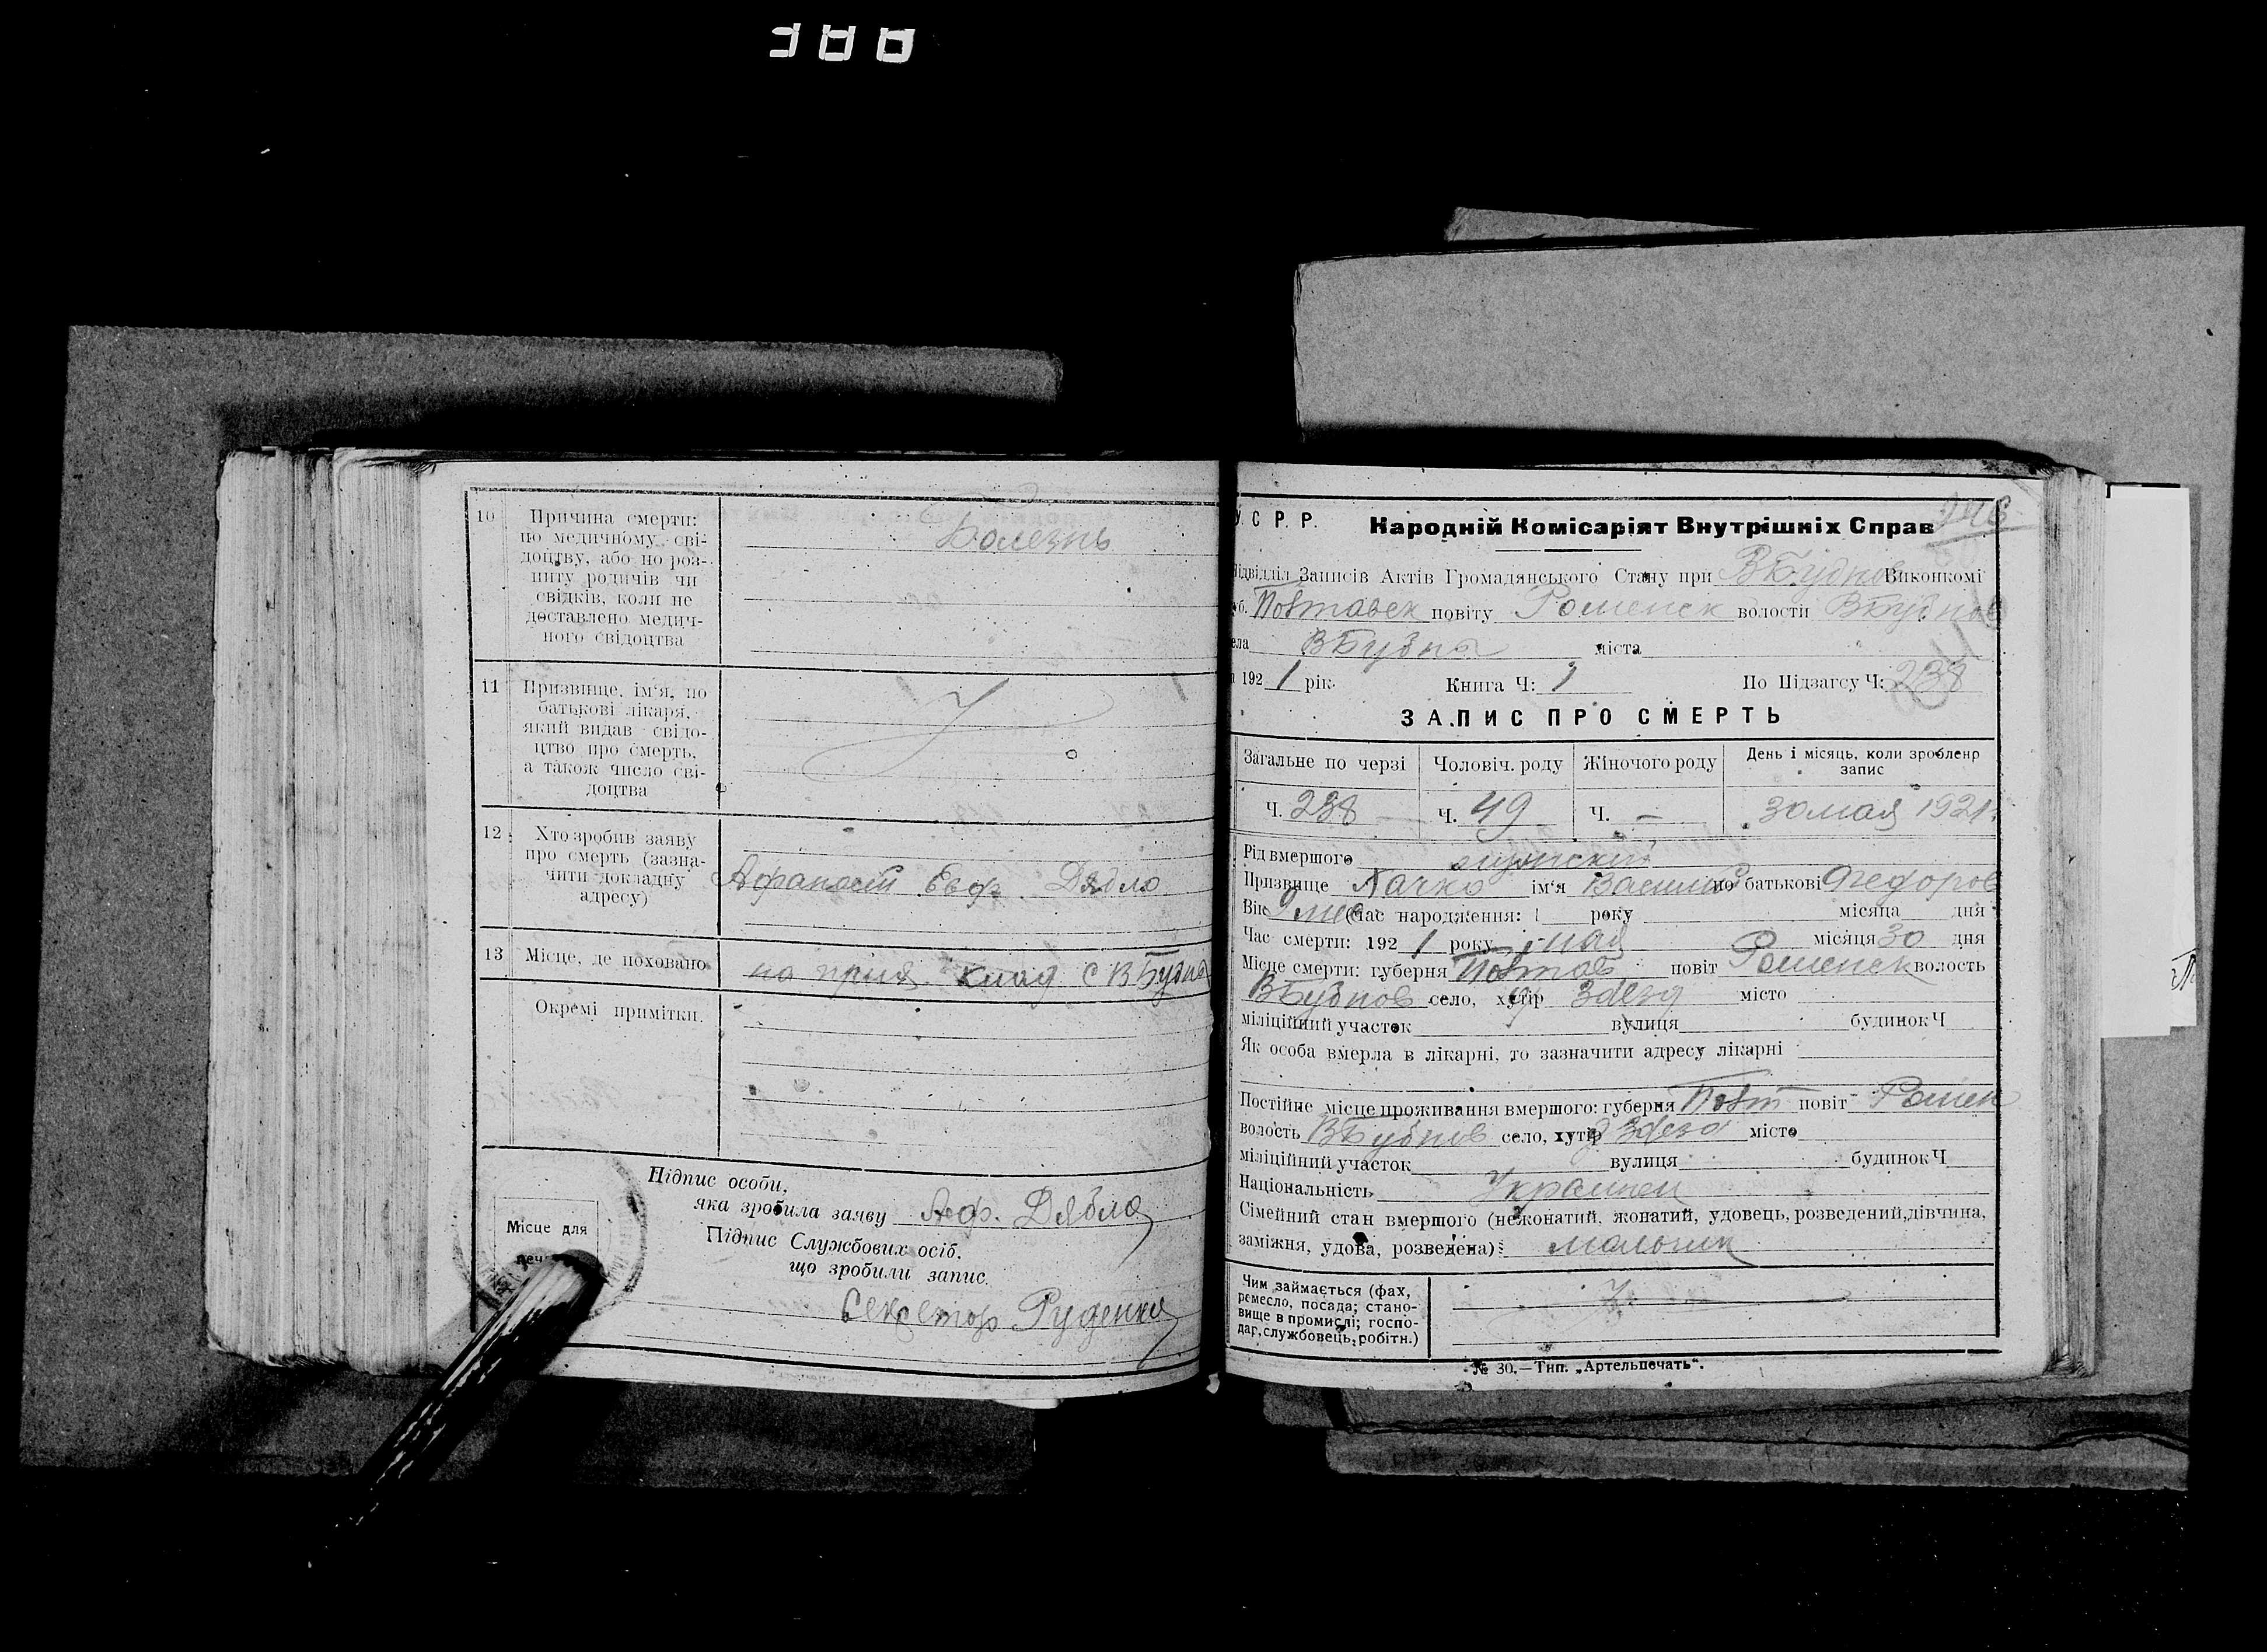 10 Причина смерти:
по медичному сві-
доцтву, або по роз-
питу родичів чи
свідків, коли не
доставлено медич-
ного свідоцтва
Болезнь
11 Призвище, ім'я, по
батькові лікаря,
який видав свідо-
цтво про смерть,
а також число сві-
доцтва
12 Хто зробив заяву
про смерть (зазна-
чити докладну
адресу)
Афанасий Евф. Дябло
13 Місце, де поховано
на прих. клад. с ВБубна
Окремі примітки.
Підпис особи,
яка зробила заяву Аф. Дябло
Підпис Службових осіб,
що зробили запис.
Місце для
печ
Секретар Руденко
У. С. Р. Р.
Народній Комісаріят Внутрішніх Справ
Підвідділ Записів Актів Громадянського Стану при ВБубнов Виконкомі
Полтавск повіту Роменск волости ВБубнов
села ВБубны міста
1921 рік. Книга Ч: 1 По Підзагсу Ч: 238
ЗАПИС ПРО СМЕРТЬ
Загальне по черзі Чоловіч. роду Жіночого роду День і місяць, коли зроблено запис
Ч. 238 Ч. 49 Ч. — 30 мая 1921 г.
Рід вмершого мужский
Призвище Лачко ім'я Василий по батькові Федоров
Вік 9 мес (час народження: 1 року місяца дня
Час смерти: 1921 року мая місяця 30 дня
Місце смерти: губерня Полтав повіт Роменск волость
ВБубнов село, хутір місто
міліційний участок вулиця будинок Ч
Як особа вмерла в лікарні, то зазначити адресу лікарні
Постійне місце проживання вмершого: губерня Полт повіт Ромен
волость ВБубнов село, хутір місто
міліційний участок вулиця будинок Ч
Національність Украинец
Сімейний стан вмершого (нежонатий, жонатий, удовець, розведений, дівчина,
заміжня, удова, розведена): мальчик
Чим займається (фах,
ремесло, посада; стано-
вище в промислі; госпо-
дар, службовець, робітн.)
№ 30.—Тип. „Артельпечать".